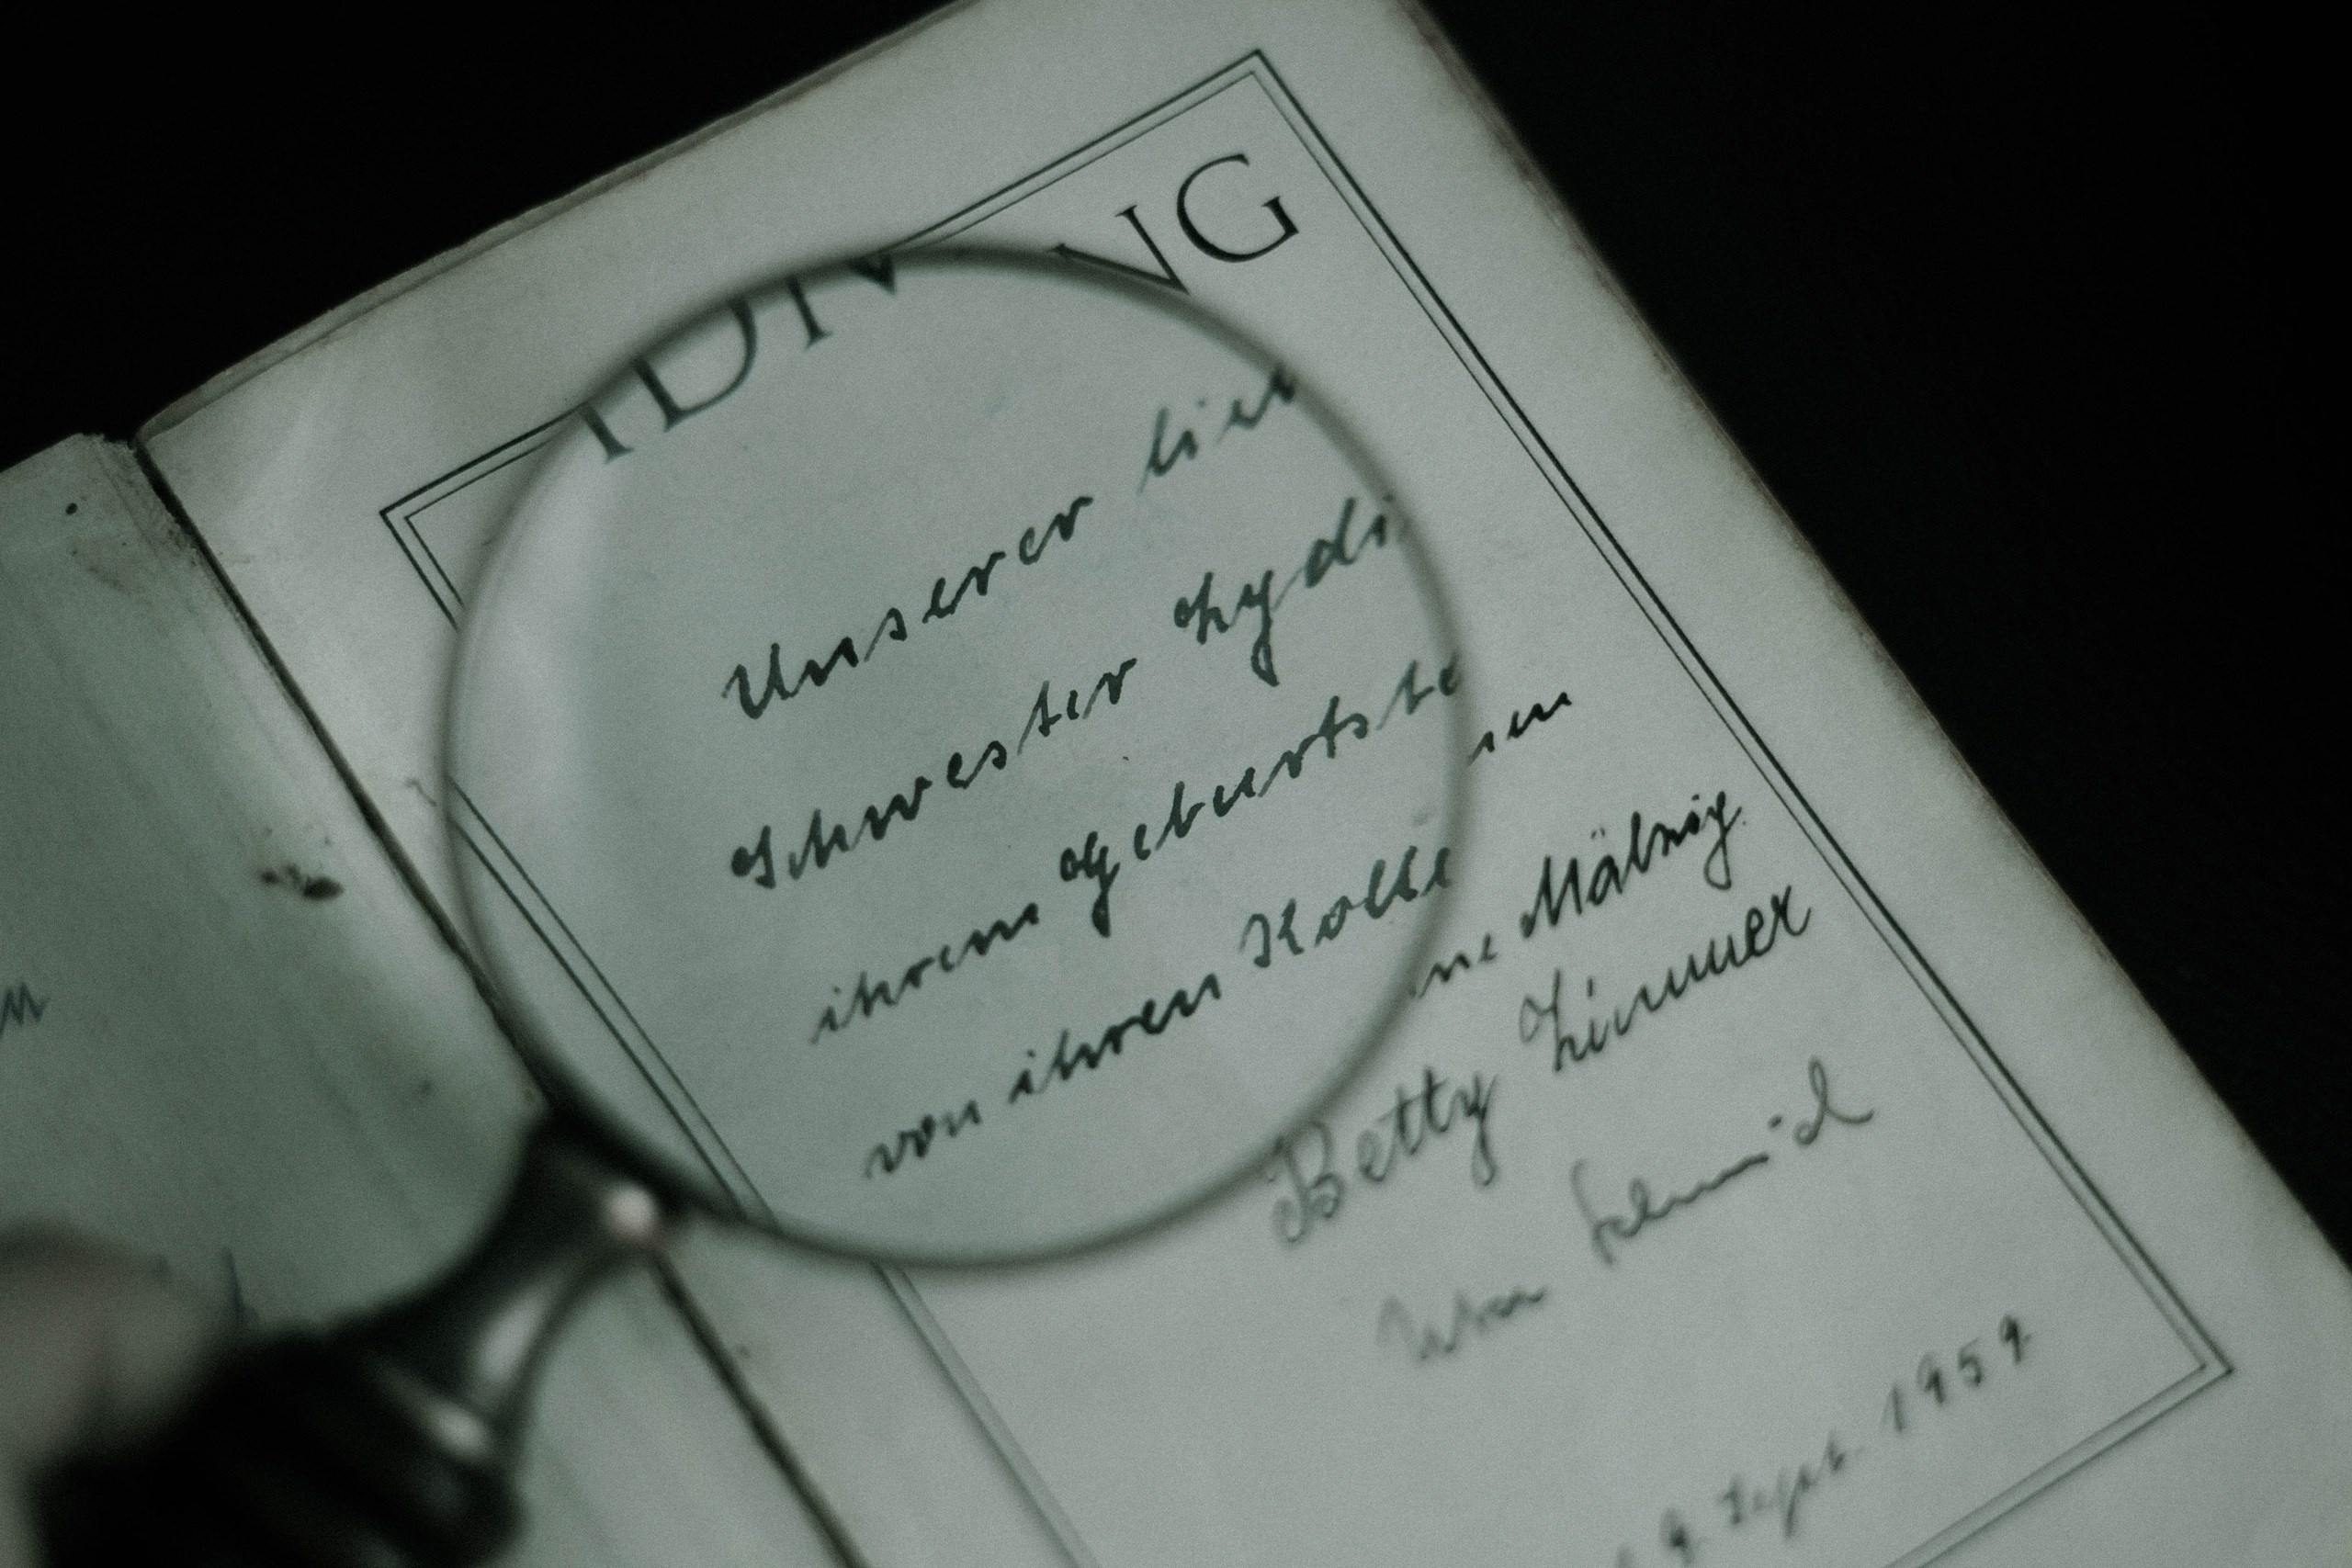 IDM NG
Unserer lieb
Schwester Lydi
ihrem Geburtsta
von ihren Kolle nen
ne Mälzig
Betty Zimmer
Schmid
9. Sept. 1959.